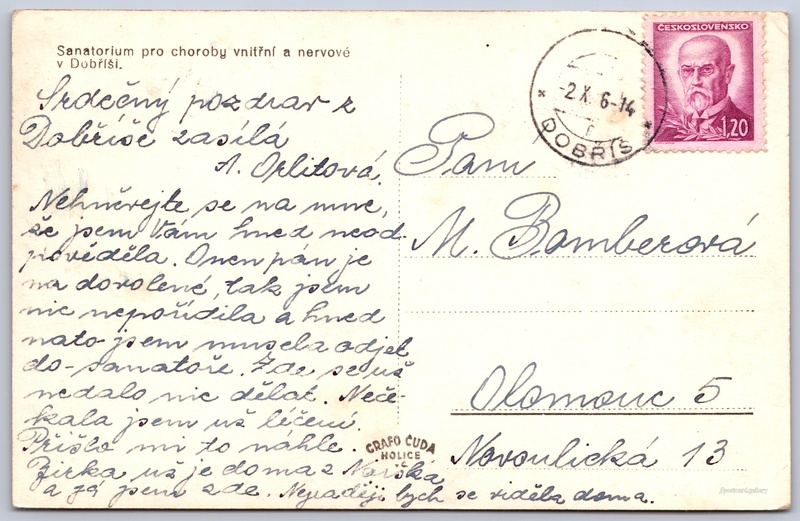 Sanatorium pro choroby vnitřní a nervové
v Dobříši.
Srdečný pozdrav z
Dobříše zasílá
A. Orlitová.
Nehněvejte se na mne,
že jsem Vám hned neod-
pověděla. Onen pán je
na dovolené, tak jsem
nic nepořídila a hned
nato jsem musela odjet
do sanatoře. Zde se už
nedalo nic dělat. Neče-
kala jsem už léčení.
Přišlo mi to náhle.
Zirka už je doma z Norska
a já jsem zde. Nejraději bych se viděla doma.
GRAFO ČUDA
HOLICE
ČESKOSLOVENSKO
1,20
-2.X.6-14
DOBŘÍŠ
Paní
M. Bomberová
Olomouc 5
Novoulická 13